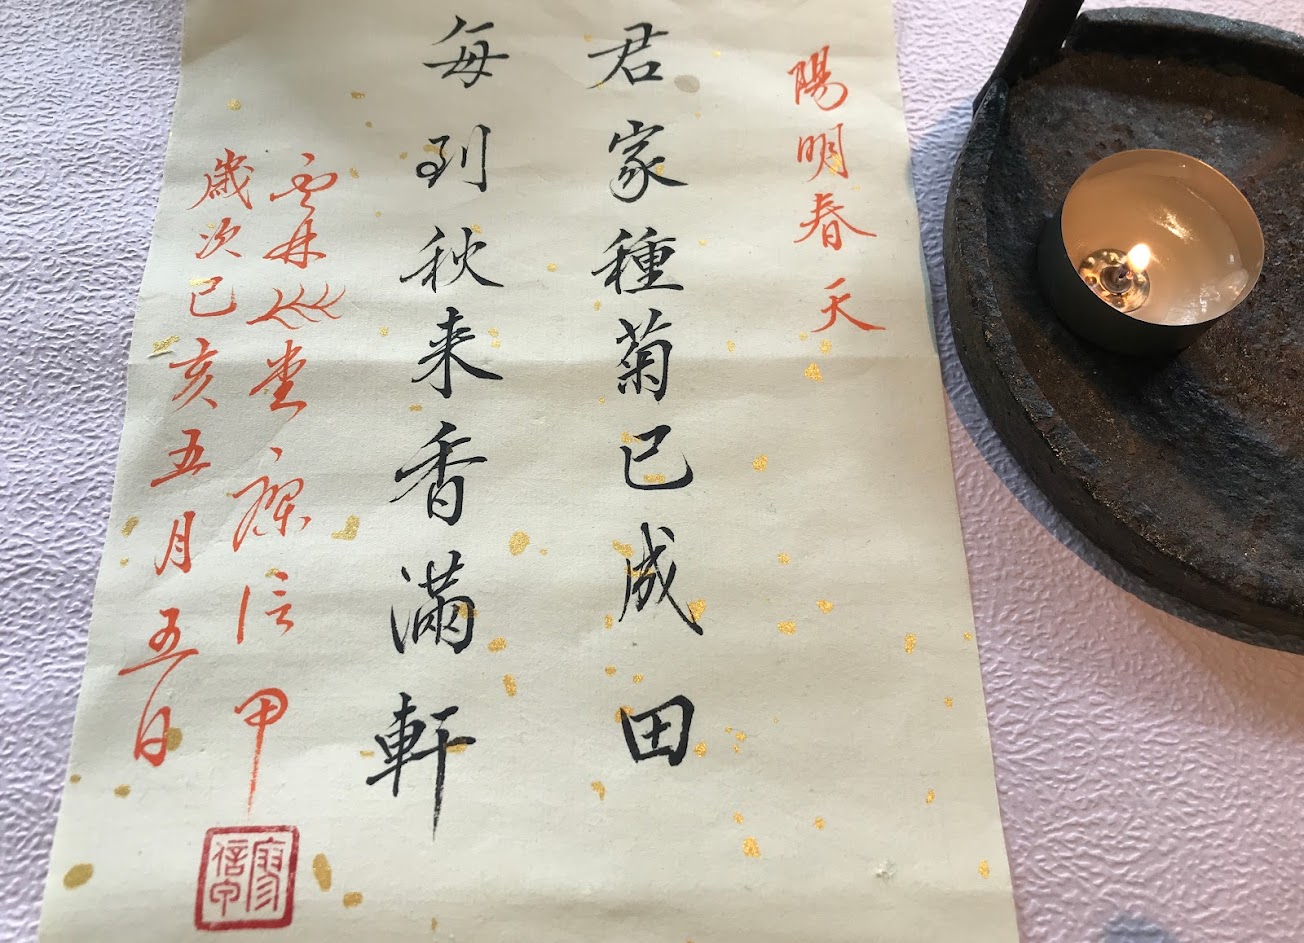 陽明春天
君家種菊已成田
每到秋来香滿軒
雲林堂廖信甲
歲次己亥五月五日
廖信甲